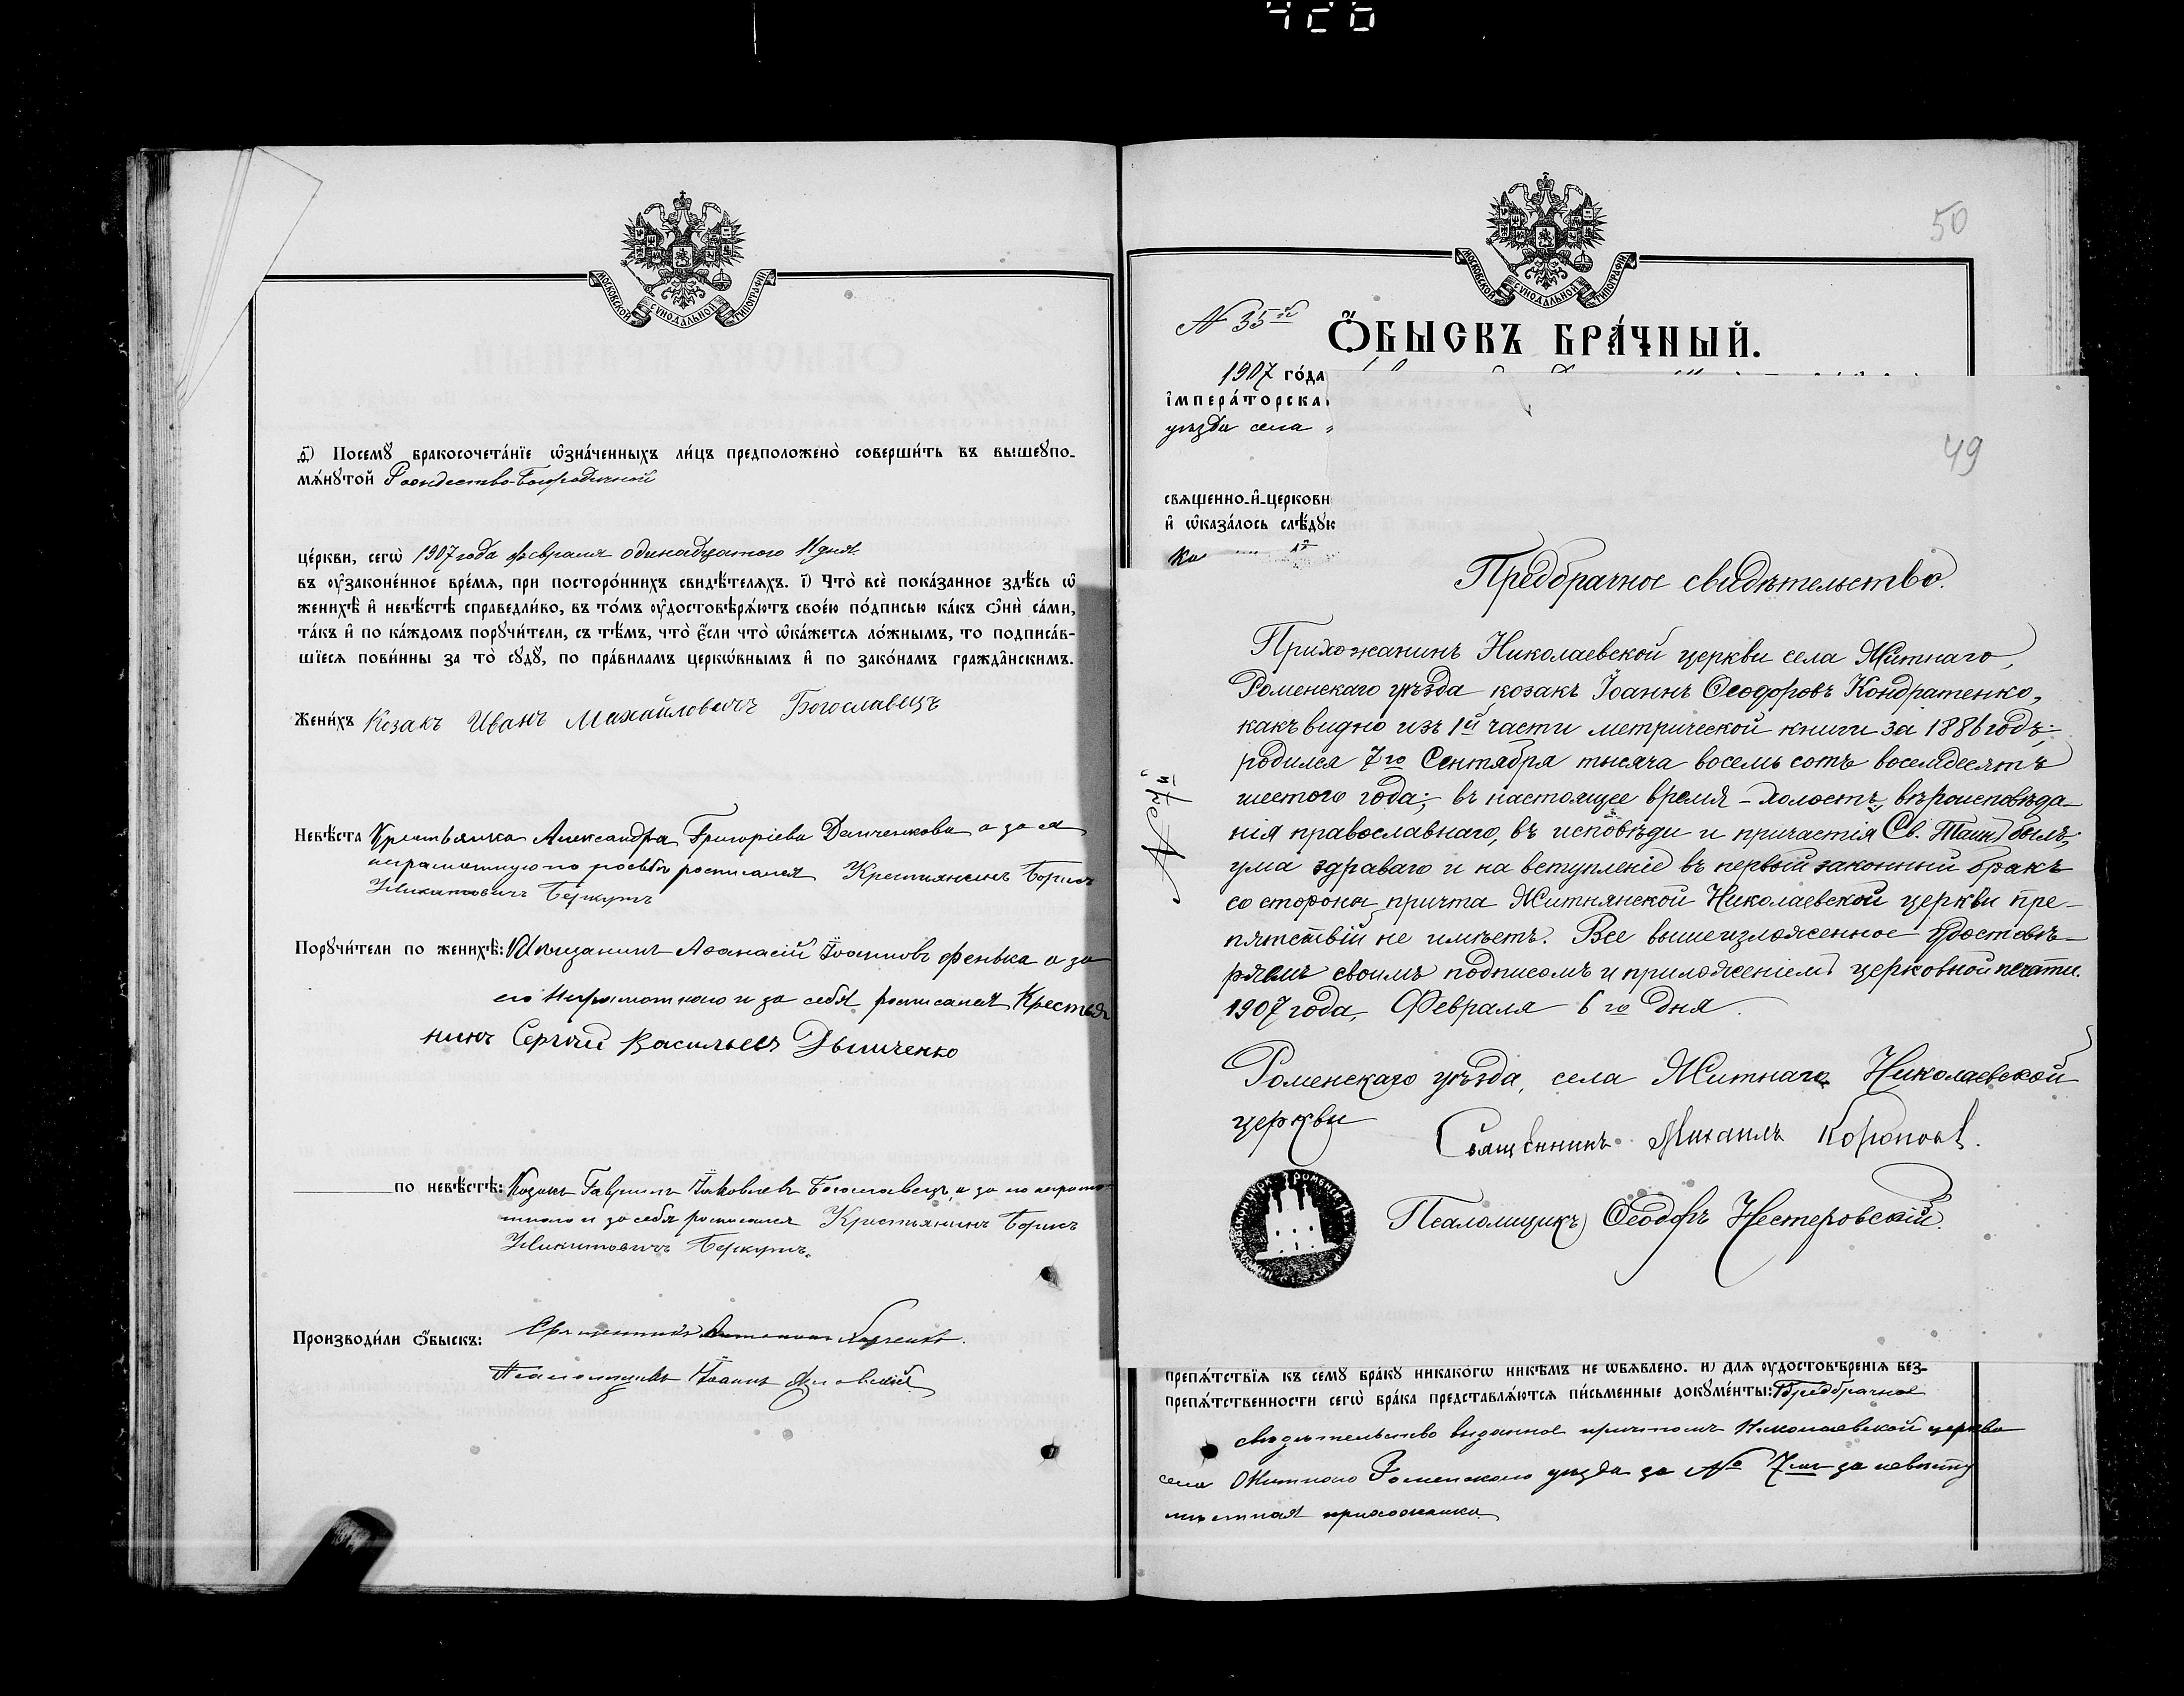 МОСКОВСКОЙ СУНОДАЛЬНОЙ ТИПОГРАФІИ
д҃) Посемꙋ бракосочета́нїе ѡ҆зна́ченныхъ ли́цъ предположено̀ соверши́ть въ вышеꙋпо-
мѧ́нꙋтой Рождество-Богородичной
це́ркви, сегѡ̀ 1907 года февраля одинадцатого 11 дня.
въ ᲂу҆законе́нное вре́мѧ, при посторо́ннихъ свидѣ́телѧхъ. і҃) Что̀ всѐ пока́занное здѣ́сь ѡ҆
женихѣ̀ и҆ невѣ́стѣ справедли́во, въ то́мъ ᲂу҆достовѣрѧ́ютъ свое́ю по́дписью ка́къ ѻ҆нѝ са́ми,
та́къ и҆ по ка́ждомъ порꙋчи́тели, съ тѣ́мъ, что̀ є҆́сли что̀ ѡ҆ка́жетсѧ ло́жнымъ, то подписа́в-
шїесѧ пови́нны за то̀ сꙋдꙋ̀, по пра́виламъ церкѡ́внымъ и҆ по зако́намъ гражда̂нскимъ.
Жени́хъ Козакъ Иванъ Михайловичъ Богославецъ
Невѣ́ста Крестьянка Александра Григоріева Данченкова а за ея
неграмотную по росьбѣ росписался Крестьянинъ Борисъ
Никитовичъ Беркутъ
Порꙋчи́тели по женихѣ̀: Мѣщанинъ Аѳанасій Іоанновъ Фенька а за
его неграмотного и за себя росписался Крестья
нинъ Сергѣй Васильевъ Дьяченко
по невѣ́стѣ: Козакъ Гавриилъ Іаковлевъ Богославецъ, а за его неграмо
тного и за себя росписался Крестьянинъ Борисъ
Никитовичъ Беркутъ.
Производи́ли ѻ҆́быскъ: Священникъ
Псаломщикъ Іоаннъ
50
МОСКОВСКОЙ СУНОДАЛЬНОЙ ТИПОГРАФІИ
№ 35й
Ѻ҆́БЫСКЪ БРА́ЧНЫЙ.
1907 го́да
і҆мпера́торска
уѣзда села
свѧщенно-и҆-церковн
и҆ ѡ҆каза́лось слѣ́дꙋю
Ко
49
Предбрачное свидѣтельство.
Прихожанинъ Николаевской церкви села Житнаго,
Роменскаго уѣзда, козакъ Іоаннъ Ѳеодоровъ Кондратенко,
какъ видно изъ 1й части метрической книги за 1886 годъ,
родился 7го Сентября тысяча восемь сотъ восемдесятъ
шестого года; въ настоящее время – холостъ, вѣроисповѣда-
нія православнаго, въ исповѣди и причастія Св. Таинъ былъ,
ума здраваго и на вступленіе въ первый законный бракъ
со стороны причта Житнянской Николаевской церкви пре-
пятствій не имѣетъ. Все вышеизложенное удостовѣ-
ряемъ своимъ подписомъ и приложеніемъ церковной печати.
1907 года, Февраля 6го дня.
№ 7й
Роменскаго уѣзда, села Житнаго Николаевской
церкви
Священникъ Михаилъ Короповъ.
Псаломщикъ Ѳеодоръ Нестеровскій.
препѧ́тствїѧ къ семꙋ̀ бра́кꙋ никако́гѡ никѣ́мъ не ѡ҆б̾ѧ́влено. и҃) Длѧ̀ ᲂу҆достовѣре́нїѧ без-
препѧ́тственности сегѡ̀ бра́ка представлѧ́ютсѧ пи́сьменные докꙋме́нты: Предбрачное
свидѣтельство выданное причтомъ Николаевской церкви
села Житного Роменского уѣзда за № 7мъ за невѣсту
мѣстная прихожанка